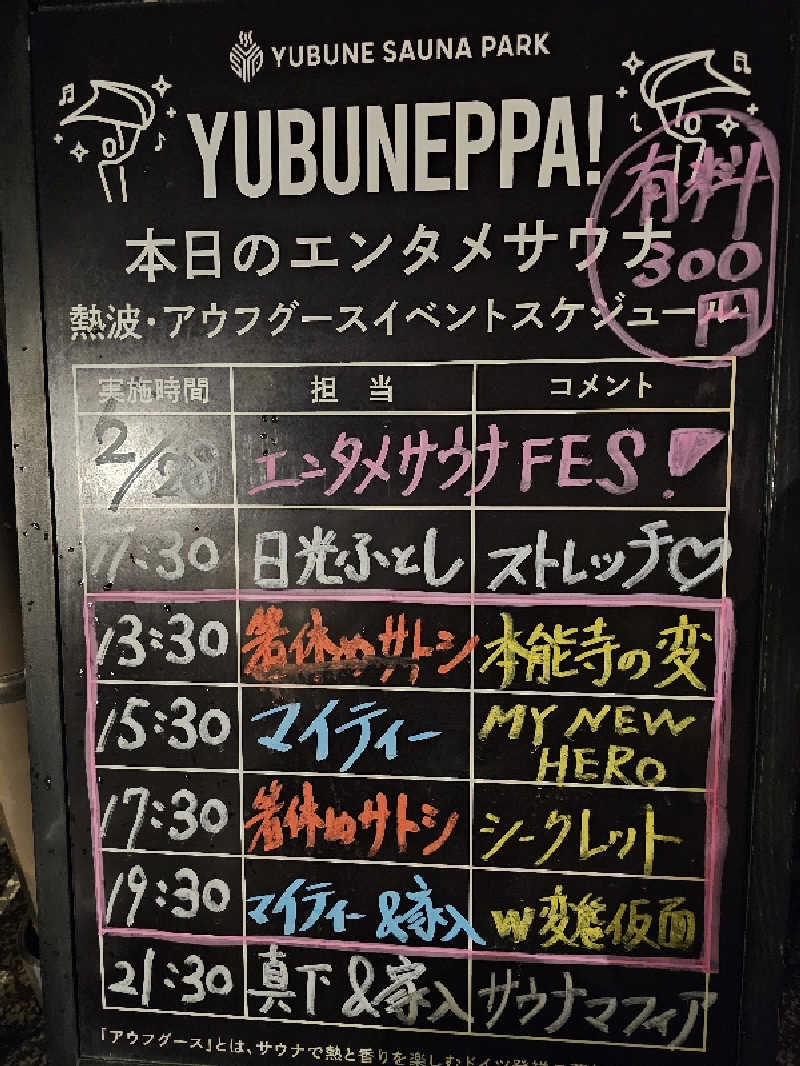 YUBUNE SAUNA PARK
YUBUNEPPA!
有料
300
円
本日のエンタメサウナ
熱波・アウフグースイベントスケジュール
実施時間 担 当 コメント
2/28 エンタメサウナFES!
11:30 日光ふとし ストレッチ♡
13:30 箸休めサトシ 本能寺の変
15:30 マイティー MY NEW HERO
17:30 箸休めサトシ シークレット
19:30 マイティー &家入 W変態仮面
21:30 真下&家入 サウナマフィア
「アウフグース」とは、サウナで熱と香りを楽しむドイツ発祥の